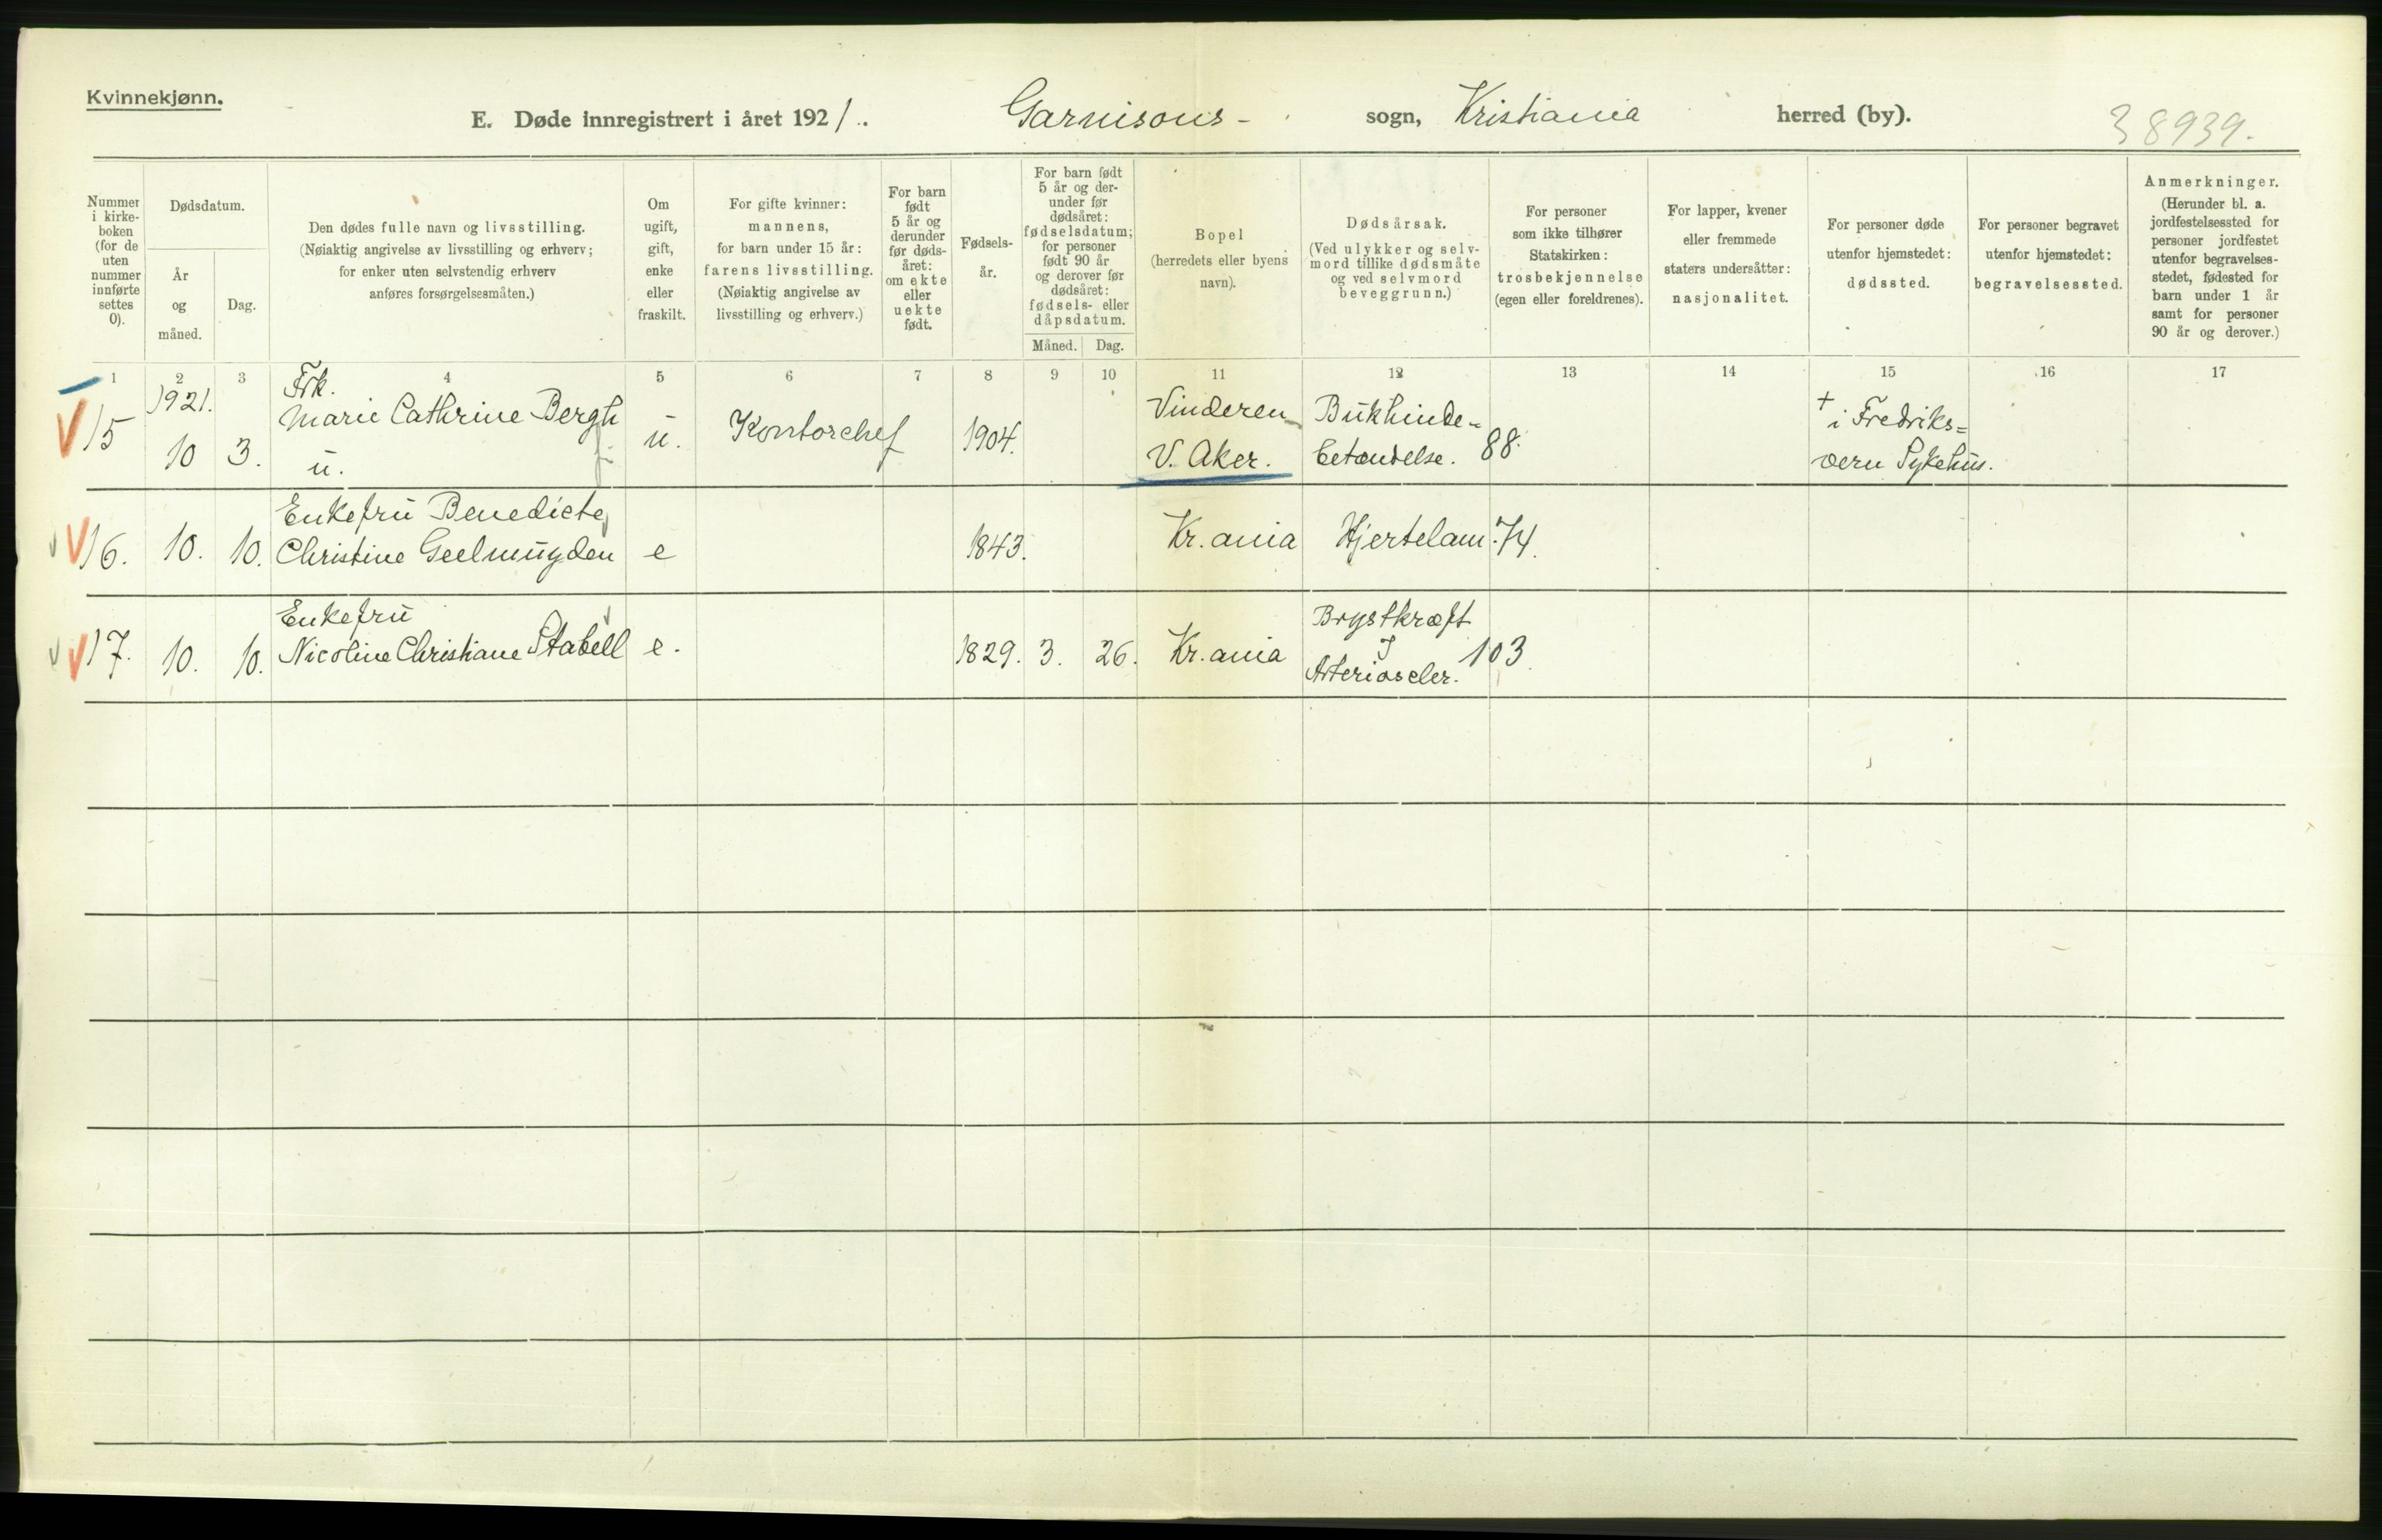 Kvinnekjønn.
E. Døde innregistrert i året 1921. Garnisons- sogn, Kristiania herred (by).
38939.
Nummer
i kirke-
boken
(for de
uten
nummer
innførte
settes
0).
Dødsdatum.
År
og
måned.
Dag.
Den dødes fulle navn og livsstilling.
(Nøiaktig angivelse av livsstilling og erhverv;
for enker uten selvstendig erhverv
anføres forsørgelsesmåten.)
Om
ugift,
gift,
enke
eller
fraskilt.
For gifte kvinner:
mannens,
for barn under 15 år:
farens livsstilling.
(Nøiaktig angivelse av
livsstilling og erhverv.)
For barn
født
5 år og
derunder
før døds-
året:
om ekte
eller
uekte
født.
Fødsels-
år.
For barn født
5 år og der-
under før
dødsåret:
fødselsdatum;
for personer
født 90 år
og derover før
dødsåret:
fødsels- eller
dåpsdatum.
Måned. Dag.
Bopel
(herredets eller byens
navn).
Dødsårsak.
(Ved ulykker og selv-
mord tillike dødsmåte
og ved selvmord
beveggrunn.)
For personer
som ikke tilhører
Statskirken:
trosbekjennelse
(egen eller foreldrenes).
For lapper, kvener
eller fremmede
staters undersåtter:
nasjonalitet.
For personer døde
utenfor hjemstedet:
dødssted.
For personer begravet
utenfor hjemstedet:
begravelsessted.
Anmerkninger.
(Herunder bl. a.
jordfestelsessted for
personer jordfestet
utenfor begravelses-
stedet, fødested for
barn under 1 år
samt for personer
90 år og derover.)
1 2 3 4 5 6 7 8 9 10 11 12 13 14 15 16 17
V 15
1921.
10 3.
Frk.
Marie Cathrine Bergh
u.
u.
Kontorchef
1904.
Vinderen
V. Aker.
Bukhinde-
betændelse. 88.
† i Fredriks=
vern Sykehus.
V 16. 10. 10.
Enkefru Benedicte
Christine Geelmuyden
e 1843. Kr.ania Hjertelam. 74.
V 17. 10. 10.
Enkefru
Nicoline Christiane Stabell
e. 1829. 3. 26. Kr.ania
Brystkræft
Arterioscler. 103